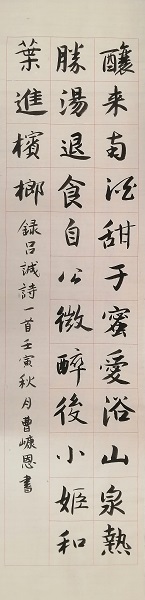 釀来南酒甜于蜜愛浴山泉熱
勝湯退食自公微醉後小姬和
葉進檳榔錄吕誠詩一首壬寅秋月曹㠊恩書